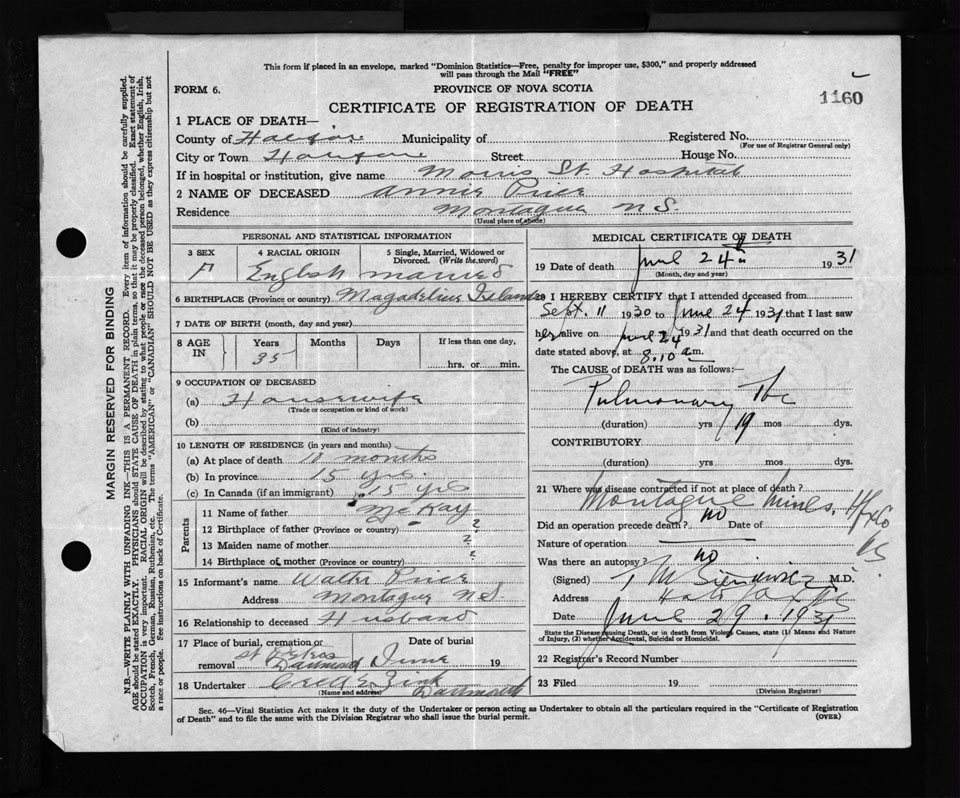 This form if placed in an envelope, marked "Dominion Statistics—Free, penalty for improper use, $300," and properly addressed
will pass through the Mail "FREE"
FORM 6.
PROVINCE OF NOVA SCOTIA
1160
CERTIFICATE OF REGISTRATION OF DEATH
1 PLACE OF DEATH—
County of Halifax Municipality of Registered No.
(For use of Registrar General only)
City or Town Halifax Street House No.
If in hospital or institution, give name Morris St. Hospital
2 NAME OF DECEASED Annie Price
Residence Montague N S.
(Usual place of abode)
PERSONAL AND STATISTICAL INFORMATION
3 SEX 4 RACIAL ORIGIN 5 Single, Married, Widowed or
Divorced. (Write the word)
F English married
6 BIRTHPLACE (Province or country)
7 DATE OF BIRTH (month, day and year)
8 AGE IN Years Months Days If less than one day,
35
hrs. or min.
9 OCCUPATION OF DECEASED
(a) Housewife
(Trade or occupation or kind of work)
(b)
(Kind of industry)
10 LENGTH OF RESIDENCE (in years and months)
(a) At place of death months
(b) In province 15 yrs.
(c) In Canada (if an immigrant) 15 yrs
Parents
11 Name of father McKay
12 Birthplace of father (Province or country) ?
13 Maiden name of mother ?
14 Birthplace of mother (Province or country) ?
15 Informant's name Walter Price
Address Montague N S
16 Relationship to deceased Husband
17 Place of burial, cremation or Date of burial
removal St Dartmouth June 19
18 Undertaker Zink Dartmouth
(Name and address)
MEDICAL CERTIFICATE OF DEATH
19 Date of death June 24 1931
(Month, day and year)
20 I HEREBY CERTIFY that I attended deceased from
Sept. 11 1930 to June 24 1931 that I last saw
her alive on June 24 1931 and that death occurred on the
date stated above, at 8.10 a.m.
The CAUSE of DEATH was as follows:
Pulmonary Tbc
(duration) yrs 19 mos dys.
CONTRIBUTORY
(duration) yrs. mos dys.
21 Where was disease contracted if not at place of death?
Montague Mines. Hfx Co
NS
Did an operation precede death? no Date of
Nature of operation
Was there an autopsy? no
(Signed) M.D.
Address Halifax
Date June 29. 1931
State the Disease causing Death, or in death from Violent Causes, state (1) Means and Nature
of Injury, (2) whether Accidental, Suicidal or Homicidal.
22 Registrar's Record Number
23 Filed 19
(Division Registrar)
Sec. 46—Vital Statistics Act makes it the duty of the Undertaker or person acting as Undertaker to obtain all the particulars required in the "Certificate of Registration
of Death" and to file the same with the Division Registrar who shall issue the burial permit.
(OVER)
MARGIN RESERVED FOR BINDING
N.B.—WRITE PLAINLY WITH UNFADING INK—THIS IS A PERMANENT RECORD. Every item of information should be carefully supplied.
AGE should be stated EXACTLY. PHYSICIANS should STATE CAUSE OF DEATH in plain terms, so that it may be properly classified. Exact statement of
OCCUPATION is very important. RACIAL ORIGIN will be described by stating to what people or race the deceased person belonged, whether English, Irish,
Scotch, French, German, Russian, Ruthenian, etc. The terms "AMERICAN" or "CANADIAN" SHOULD NOT BE USED as they express citizenship but not
a race or people. See instructions on back of Certificate.